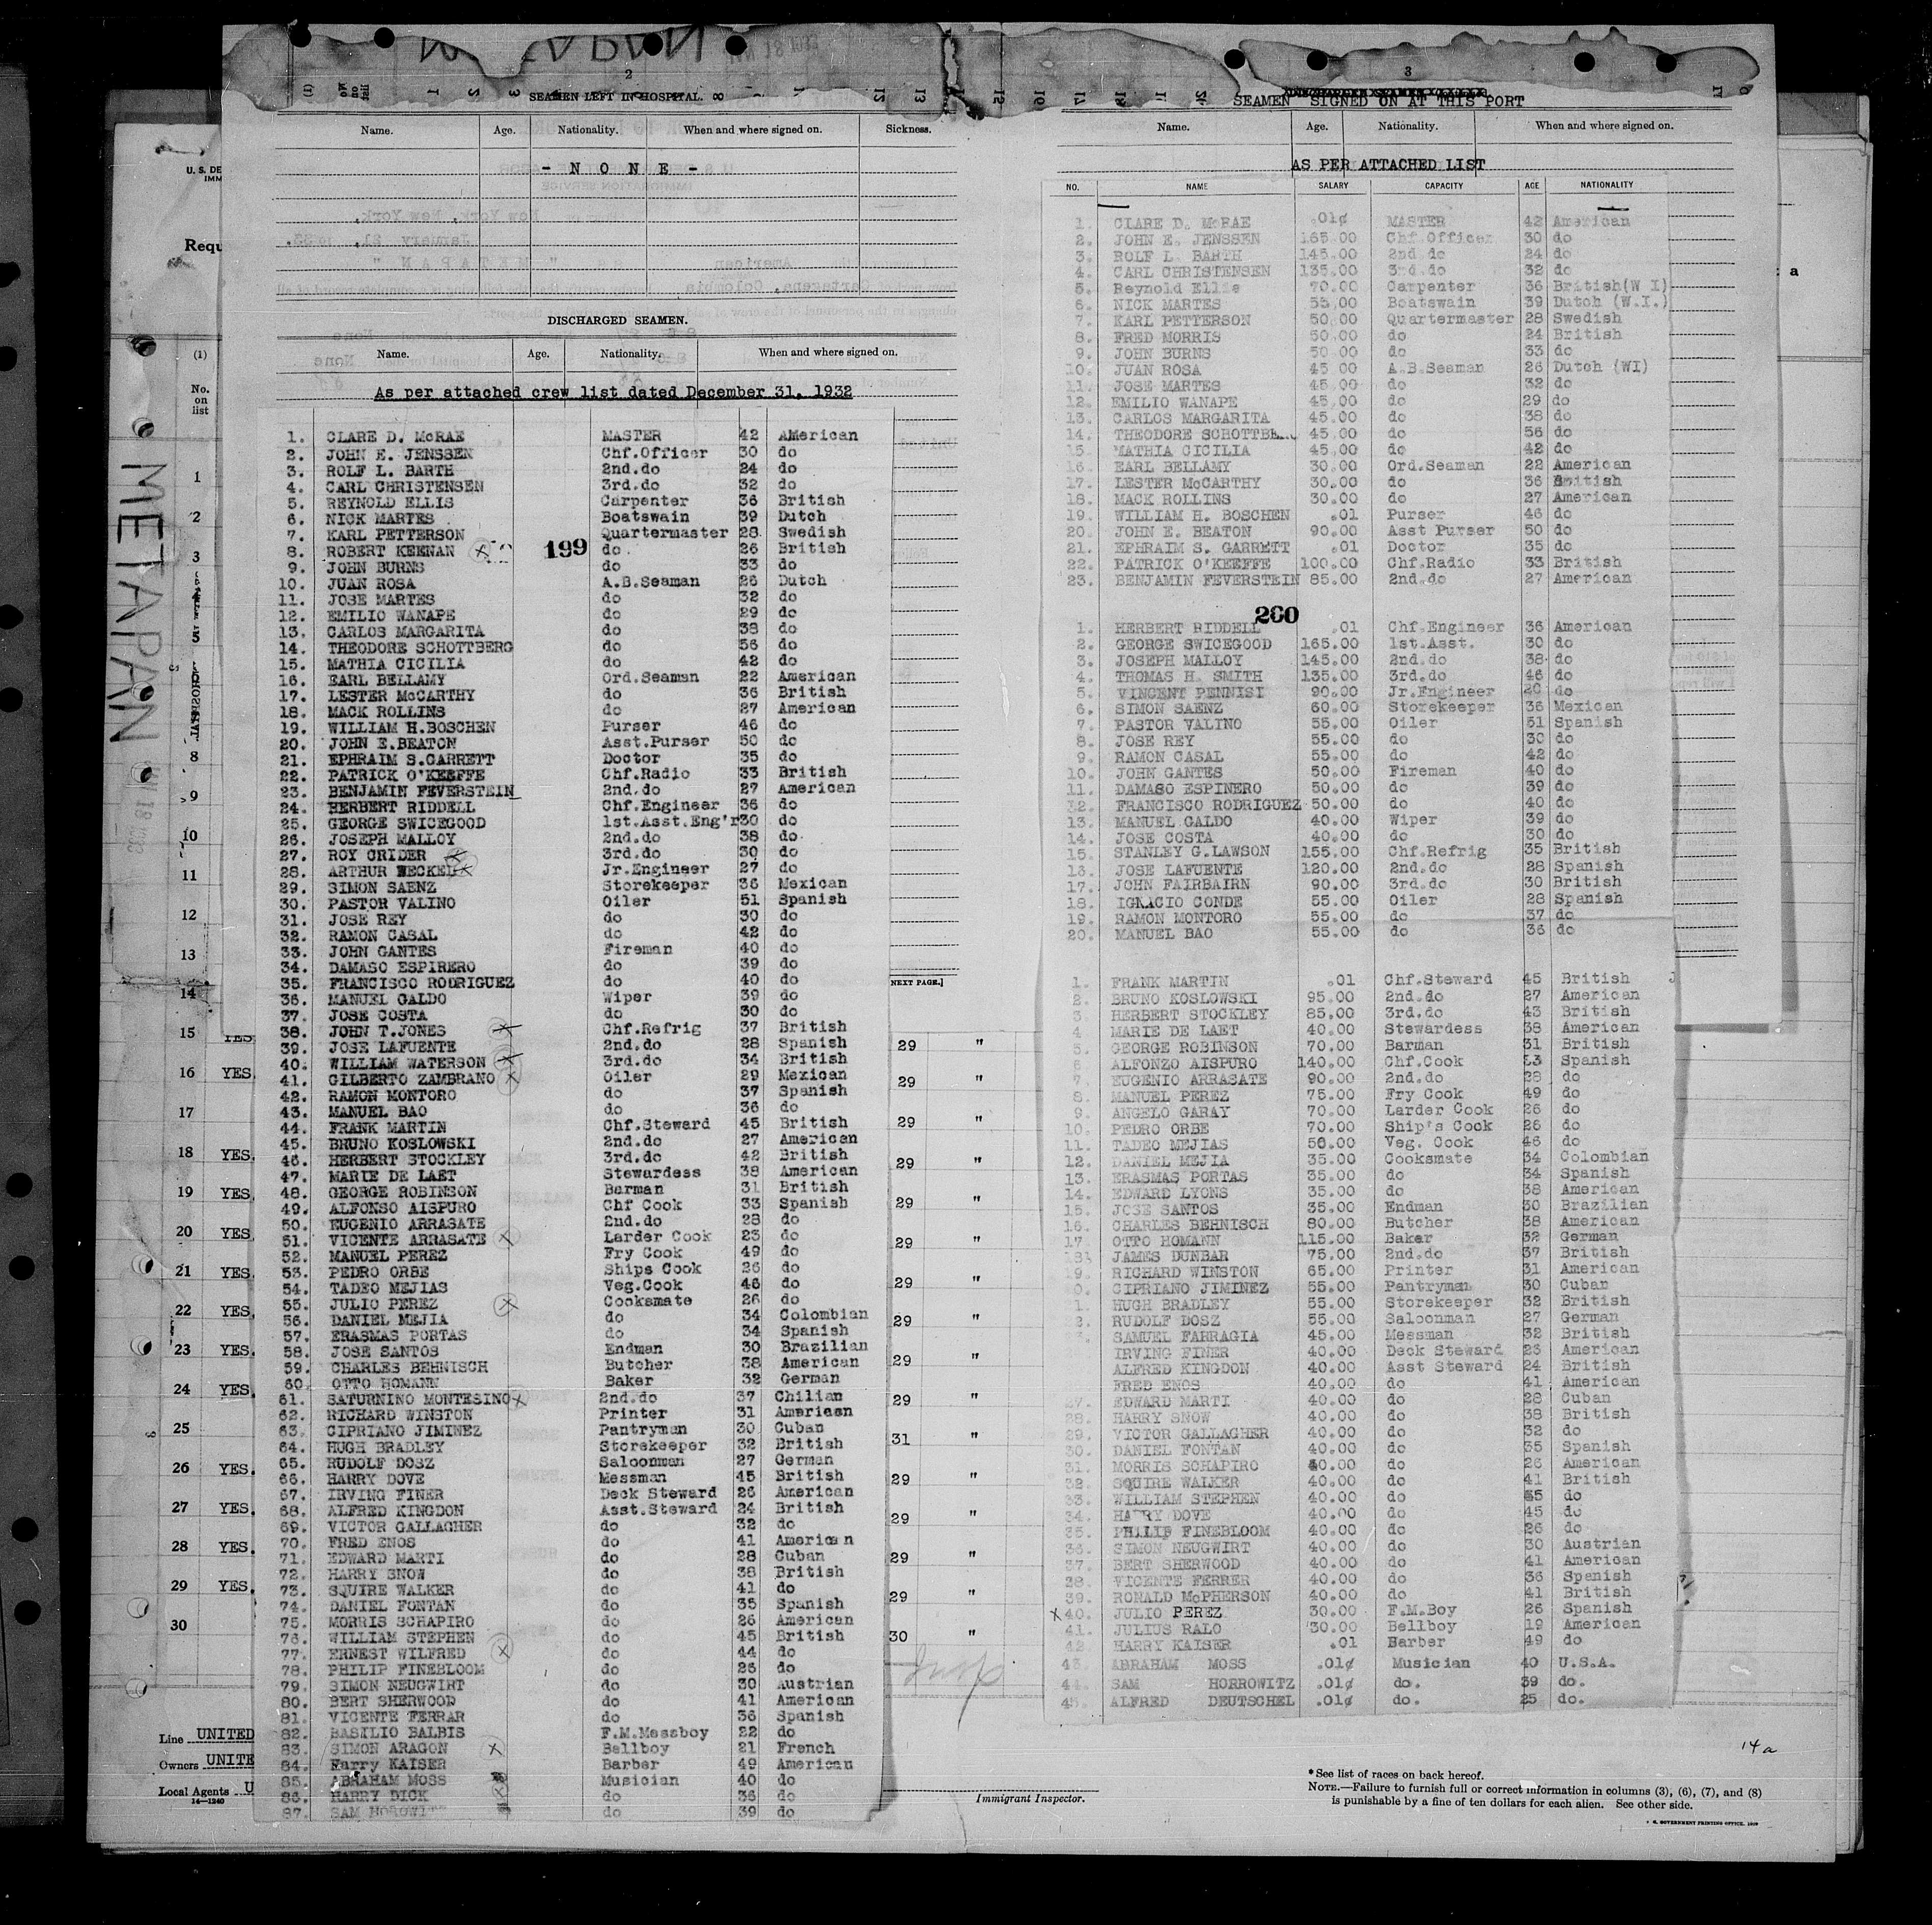 METAPAN
U. S. DE
IMM
Requ
(1)
No.
on
list
1
2
3
5
8
9
10
11
12
13
14
15
16 YES.
17
18 YES.
19 YES.
20 YES.
21 YES.
22 YES.
23 YES.
24 YES.
25
26 YES.
27 YES.
28 YES.
29 YES.
30
Line UNITED
Owners UNITE
Local Agents U
14—1240
2
SEAMEN LEFT IN HOSPITAL.
Name. Age. Nationality. When and where signed on. Sickness.
- N O N E -
DISCHARGED SEAMEN.
Name. Age. Nationality. When and where signed on.
As per attached crew list dated December 31, 1932
199
1. CLARE D. McRAE MASTER 42 American
2. JOHN E. JENSSEN Chf.Officer 30 do
3. ROLF L. BARTH 2nd.do 24 do
4. CARL CHRISTENSEN 3rd.do 32 do
5. REYNOLD ELLIS Carpenter 36 British
6. NICK MARTES Boatswain 39 Dutch
7. KARL PETTERSON Quartermaster 28 Swedish
8. ROBERT KEENAN x do 26 British
9. JOHN BURNS do 33 do
10. JUAN ROSA A.B.Seaman 26 Dutch
11. JOSE MARTES do 32 do
12. EMILIO WANAPE do 29 do
13. CARLOS MARGARITA do 38 do
14. THEODORE SCHOTTBERG do 56 do
15. MATHIA CICILIA do 42 do
16. EARL BELLAMY Ord.Seaman 22 American
17. LESTER McCARTHY do 36 British
18. MACK ROLLINS do 27 American
19. WILLIAM H.BOSCHEN Purser 46 do
20. JOHN E.BEATON Asst.Purser 50 do
21. EPHRAIM S.GARRETT Doctor 35 do
22. PATRICK O'KEEFFE Chf.Radio 33 British
23. BENJAMIN FEVERSTEIN 2nd.do 27 American
24. HERBERT RIDDELL Chf.Engineer 36 do
25. GEORGE SWICEGOOD 1st.Asst.Eng'r 30 do
26. JOSEPH MALLOY 2nd.do 38 do
27. ROY CRIDER x 3rd.do 30 do
28. ARTHUR WECKEL x Jr.Engineer 27 do
29. SIMON SAENZ Storekeeper 36 Mexican
30. PASTOR VALINO Oiler 51 Spanish
31. JOSE REY do 30 do
32. RAMON CASAL do 42 do
33. JOHN GANTES Fireman 40 do
34. DAMASO ESPIRERO do 39 do
35. FRANCISCO RODRIGUEZ do 40 do
36. MANUEL GALDO Wiper 39 do
37. JOSE COSTA do 30 do
38. JOHN T.JONES x Chf.Refrig 37 British
39. JOSE LAFUENTE 2nd.do 28 Spanish
40. WILLIAM WATERSON x 3rd.do 34 British
41. GILBERTO ZAMBRANO x Oiler 29 Mexican
42. RAMON MONTORO do 37 Spanish
43. MANUEL BAO do 36 do
44. FRANK MARTIN Chf.Steward 45 British
45. BRUNO KOSLOWSKI 2nd.do 27 American
46. HERBERT STOCKLEY 3rd.do 42 British
47. MARIE DE LAET Stewardess 38 American
48. GEORGE ROBINSON Barman 31 British
49. ALFONSO AISPURO Chf Cook 33 Spanish
50. EUGENIO ARRASATE 2nd.do 28 do
51. VICENTE ARRASATE x Larder Cook 23 do
52. MANUEL PEREZ Fry Cook 49 do
53. PEDRO ORBE Ships Cook 26 do
54. TADEO MEJIAS Veg.Cook 46 do
55. JULIO PEREZ x Cooksmate 26 do
56. DANIEL MEJIA do 34 Colombian
57. ERASMAS PORTAS do 34 Spanish
58. JOSE SANTOS Endman 30 Brazilian
59. CHARLES BEHNISCH Butcher 38 American
60. OTTO HOMANN Baker 32 German
61. SATURNINO MONTESINO x 2nd.do 37 Chilian
62. RICHARD WINSTON Printer 31 American
63. CIPRIANO JIMINEZ Pantryman 30 Cuban
64. HUGH BRADLEY Storekeeper 32 British
65. RUDOLF DOSZ Saloonman 27 German
66. HARRY DOVE Messman 45 British
67. IRVING FINER Deck Steward 26 American
68. ALFRED KINGDON Asst.Steward 24 British
69. VICTOR GALLAGHER do 32 do
70. FRED ENOS do 41 American
71. EDWARD MARTI do 28 Cuban
72. HARRY SNOW do 38 British
73. SQUIRE WALKER do 41 do
74. DANIEL FONTAN do 35 Spanish
75. MORRIS SCHAPIRO do 26 American
76. WILLIAM STEPHEN do 45 British
77. ERNEST WILFRED x do 44 do
78. PHILIP FINEBLOOM do 26 do
79. SIMON NEUGWIRT do 30 Austrian
80. BERT SHERWOOD do 41 American
81. VICENTE FERRAR do 36 Spanish
82. BASILIO BALBIS F.M.Messboy 22 do
83. SIMON ARAGON x Bellboy 21 French
84. Harry KAISER Barber 49 American
85. ABRAHAM MOSS Musician 40 do
86. HARRY DICK x do 36 do
87. SAM HOROWITZ do 39 do
NEXT PAGE.]
29 "
29 "
29 "
29 "
29 "
29 "
29 "
29 "
29 "
29 "
31 "
29 "
29 "
29 "
29 "
30 "
Immigrant Inspector.
3
SEAMEN SIGNED ON AT THIS PORT
Name. Age. Nationality. When and where signed on.
AS PER ATTACHED LIST
NO. NAME SALARY CAPACITY AGE NATIONALITY
1. CLARE D. McRAE .01¢ MASTER 42 American
2. JOHN E. JENSSEN 165.00 Chf.Officer 30 do
3. ROLF L. BARTH 145.00 2nd.do 24 do
4. CARL CHRISTENSEN 135.00 3rd.do 32 do
5. Reynold Ellis 70.00 Carpenter 36 British(W I)
6. NICK MARTES 55.00 Boatswain 39 Dutch (W.I.)
7. KARL PETTERSON 50.00 Quartermaster 28 Swedish
8. FRED MORRIS 50.00 do 24 British
9. JOHN BURNS 50.00 do 33 do
10. JUAN ROSA 45.00 A.B.Seaman 26 Dutch (WI)
11. JOSE MARTES 45.00 do 32 do
12. EMILIO WANAPE 45.00 do 29 do
13. CARLOS MARGARITA 45.00 do 38 do
14. THEODORE 45.00 do 56 do
15. MATHIA CICILIA 45.00 do 42 do
16. EARL BELLAMY 30.00 Ord.Seaman 22 American
17. LESTER McCARTHY 30.00 do 36 British
18. MACK ROLLINS 30.00 do 27 American
19. WILLIAM H. BOSCHEN .01 Purser 46 do
20. JOHN E. BEATON 90.00 Asst Purser 50 do
21. EPHRAIM S. GARRETT .01 Doctor 35 do
22. PATRICK O'KEEFFE 100.00 Chf.Radio 33 British
23. BENJAMIN FEVERSTEIN 85.00 2nd.do 27 American
260
1. HERBERT RIDDELL .01 Chf.Engineer 36 American
2. GEORGE SWICEGOOD 165.00 1st.Asst. 30 do
3. JOSEPH MALLOY 145.00 2nd.do 38 do
4. THOMAS H. SMITH 135.00 3rd.do 46 do
5. VINCENT PENNISI 90.00 Jr.Engineer 20 do
6. SIMON SAENZ 60.00 Storekeeper 36 Mexican
7. PASTOR VALINO 55.00 Oiler 51 Spanish
8. JOSE REY 55.00 do 30 do
9. RAMON CASAL 55.00 do 42 do
10. JOHN GANTES 50.00 Fireman 40 do
11. DAMASO ESPINERO 50.00 do 39 do
12. FRANCISCO RODRIGUEZ 50.00 do 40 do
13. MANUEL GALDO 40.00 Wiper 39 do
14. JOSE COSTA 40.00 do 30 do
15. STANLEY G.LAWSON 155.00 Chf.Refrig 35 British
13. JOSE LAFUENTE 120.00 2nd.do 28 Spanish
17. JOHN FAIRBAIRN 90.00 3rd.do 30 British
18. IGNACIO CONDE 55.00 Oiler 28 Spanish
19. RAMON MONTORO 55.00 do 37 do
20. MANUEL BAO 55.00 do 36 do
1. FRANK MARTIN .01 Chf.Steward 45 British
2. BRUNO KOSLOWSKI 95.00 2nd.do 27 American
3. HERBERT STOCKLEY 85.00 3rd.do 43 British
4 MARIE DE LAET 40.00 Stewardess 38 American
5. GEORGE ROBINSON 70.00 Barman 31 British
6 ALFONZO AISPURO 140.00 Chf.Cook 33 Spanish
7. EUGENIO ARRASATE 90.00 2nd.do 28 do
8. MANUEL PEREZ 75.00 Fry Cook 49 do
9. ANGELO GARAY 70.00 Larder Cook 26 do
10. PEDRO ORBE 70.00 Ship's Cook 26 do
11. TADEO MEJIAS 50.00 Veg. Cook 46 do
12. DANIEL MEJIA 35.00 Cooksmate 34 Colombian
13. ERASMAS PORTAS 35.00 do 34 Spanish
14. EDWARD LYONS 35.00 do 38 American
15. JOSE SANTOS 35.00 Endman 30 Brazilian
16. CHARLES BEHNISCH 80.00 Butcher 38 American
17. OTTO HOMANN 115.00 Baker 32 German
18. JAMES DUNBAR 75.00 2nd.do 37 British
19. RICHARD WINSTON 65.00 Printer 31 American
0. CIPRIANO JIMINEZ 55.00 Pantryman 30 Cuban
1. HUGH BRADLEY 55.00 Storekeeper 32 British
2. RUDOLF DOSZ 55.00 Saloonman 27 German
SAMUEL FARRAGIA 45.00 Messman 32 British
IRVING FINER 40.00 Deck Steward 26 American
ALFRED KINGDON 40.00 Asst Steward 24 British
FRED ENOS 40.00 do 41 American
27. EDWARD MARTI 40.00 do 28 Cuban
28. HARRY SNOW 40.00 do 38 British
29. VICTOR GALLAGHER 40.00 do 32 do
30. DANIEL FONTAN 40.00 do 35 Spanish
31. MORRIS SCHAPIRO 40.00 do 26 American
32. SQUIRE WALKER 40.00 do 41 British
33. WILLIAM STEPHEN 40.00 do 45 do
34. HARRY DOVE 40.00 do 45 do
35. PHILIP FINEBLOOM 40.00 do 26 do
36. SIMON NEUGWIRT 40.00 do 30 Austrian
37. BERT SHERWOOD 40.00 do 41 American
38. VICENTE FERRER 40.00 do 36 Spanish
39. RONALD McPHERSON 40.00 do 41 British
x 40. JULIO PEREZ 30.00 F.M.Boy 26 Spanish
41. JULIUS RALO 30.00 Bellboy 19 American
42. HARRY KAISER .01 Barber 49 do
43. ABRAHAM MOSS .01¢ Musician 40 U.S.A.
44. SAM HORROWITZ .01¢ do. 39 do.
45. ALFRED DEUTSCHEL .01¢ do. 25 do.
14a
*See list of races on back hereof.
NOTE.—Failure to furnish full or correct information in columns (3), (6), (7), and (8)
is punishable by a fine of ten dollars for each alien. See other side.